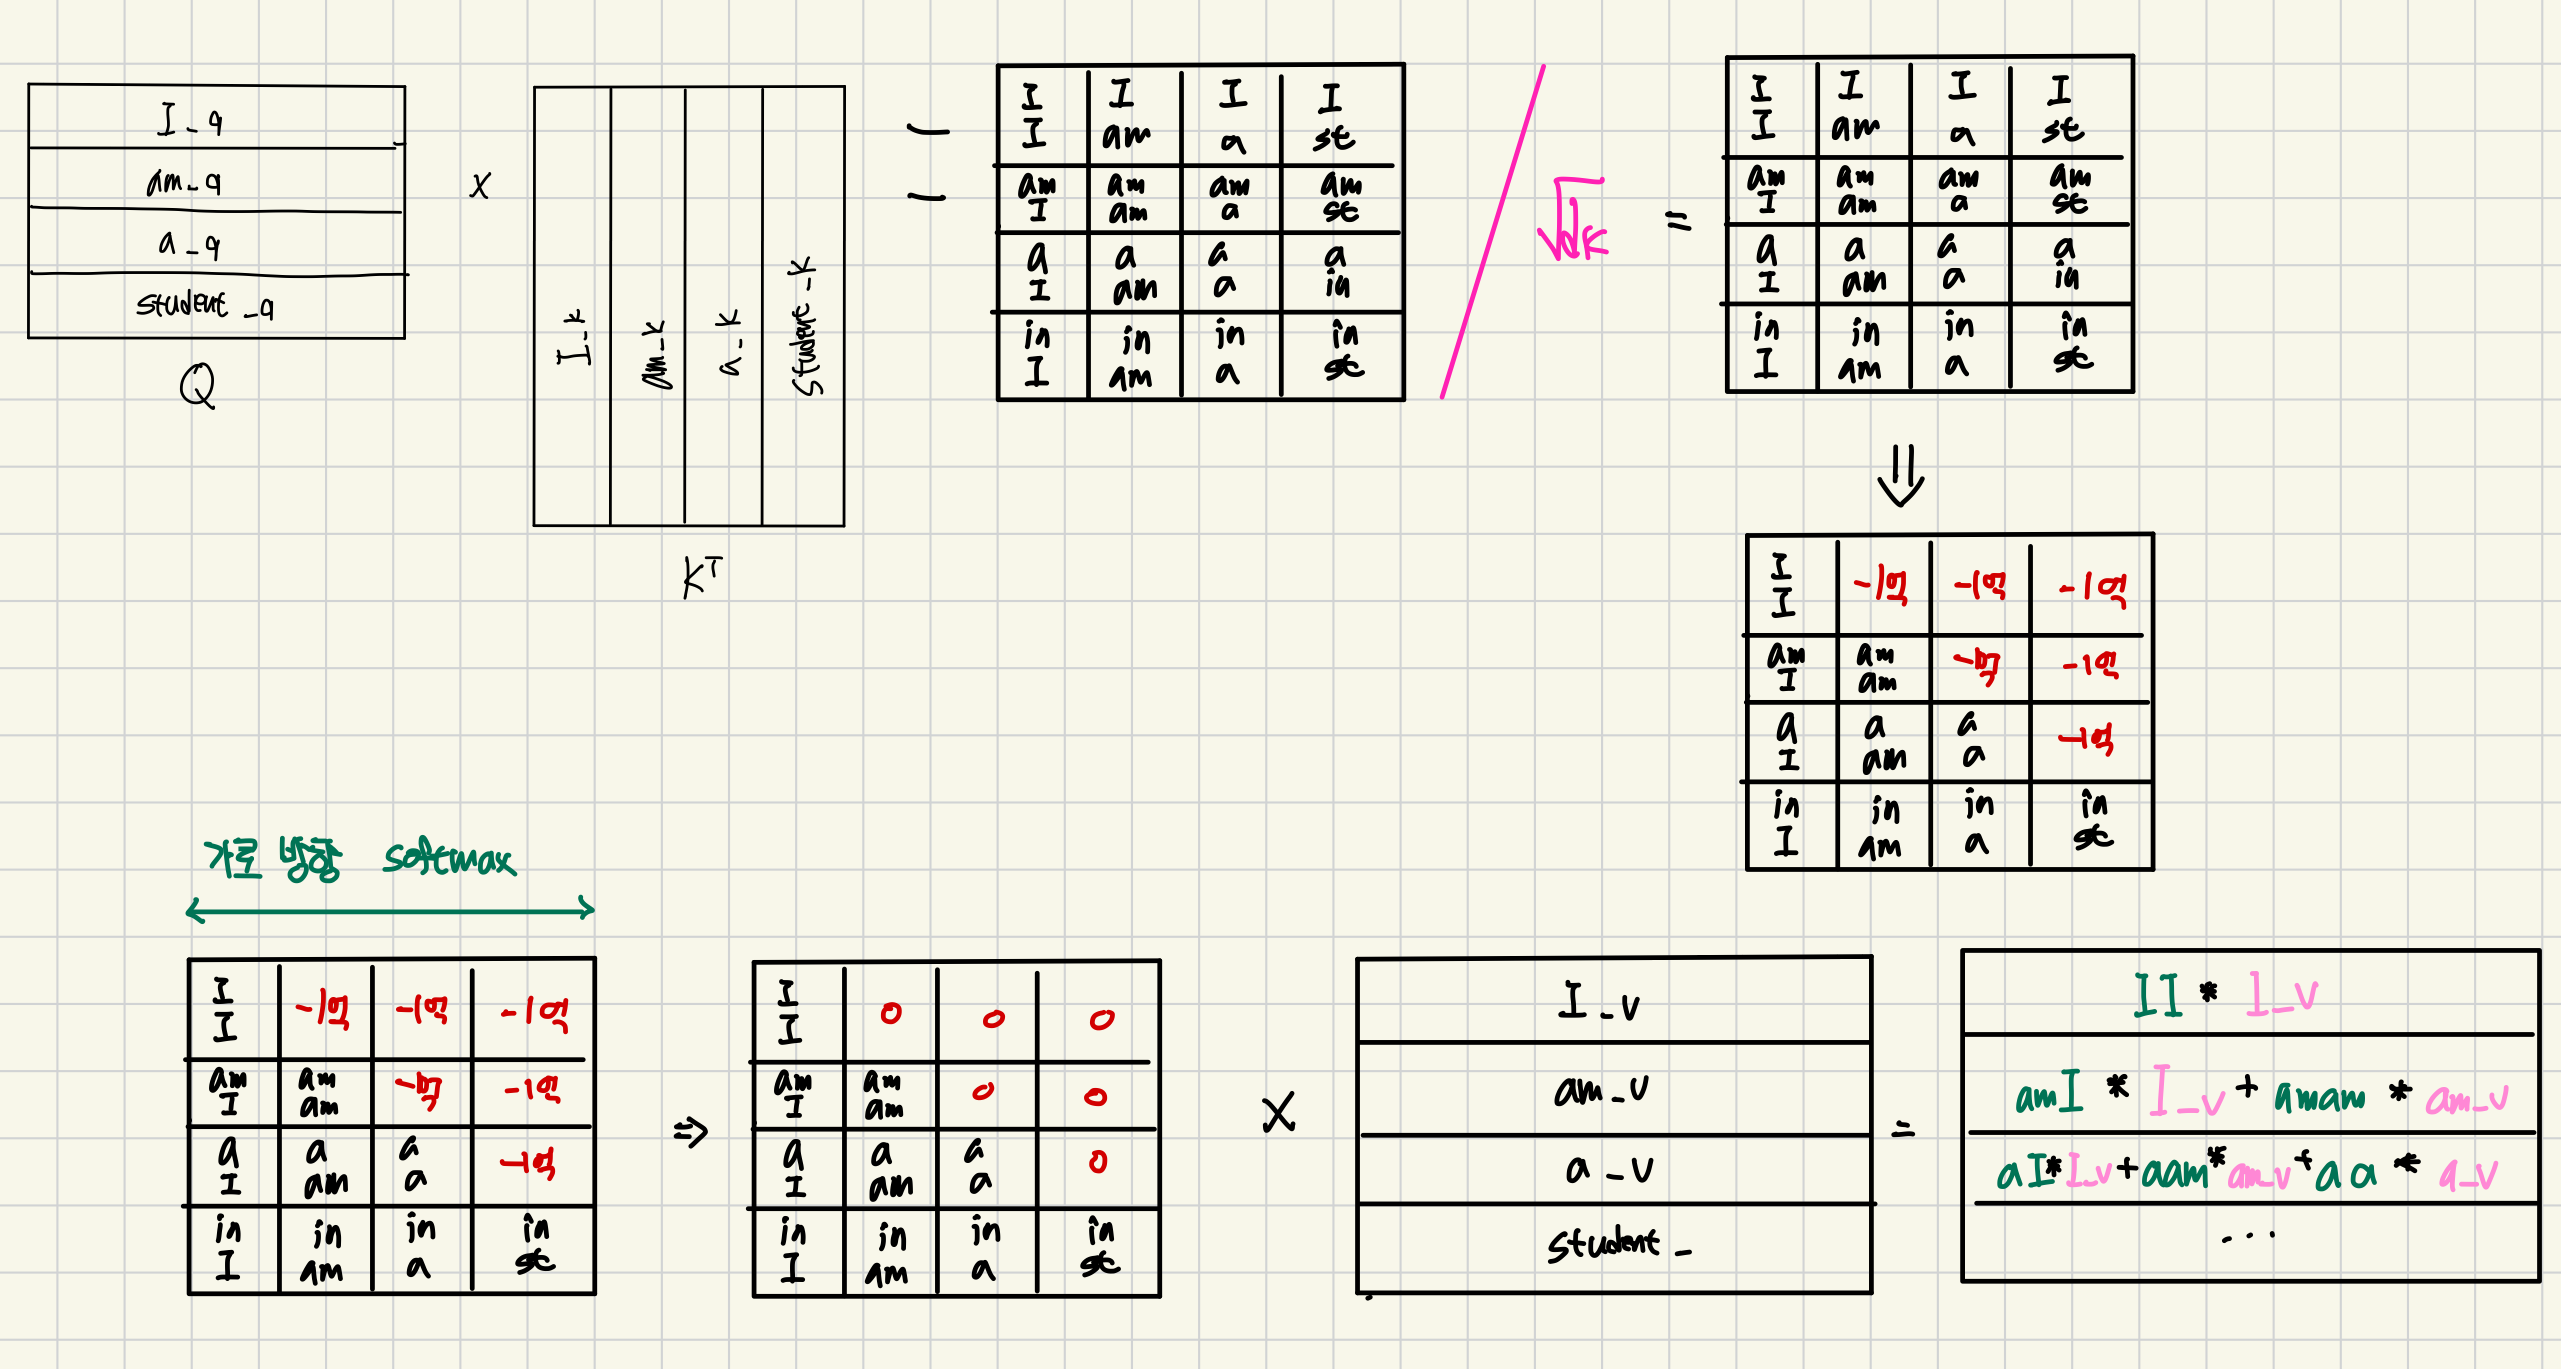 I_q
am_q
a_q
student_q
Q
x
I_k
am_k
a_k
student_k
K^T
=
I I | I am | I a | I st
am I | am am | am a | am st
a I | a am | a a | a in
in I | in am | in a | in st
/ √dk
=
I I | I am | I a | I st
am I | am am | am a | am st
a I | a am | a a | a in
in I | in am | in a | in st
⇓
I I | -1억 | -1억 | -1억
am I | am am | -1억 | -1억
a I | a am | a a | -1억
in I | in am | in a | in st
가로 방향 softmax
I I | -1억 | -1억 | -1억
am I | am am | -1억 | -1억
a I | a am | a a | -1억
in I | in am | in a | in st
⇒
I I | 0 | 0 | 0
am I | am am | 0 | 0
a I | a am | a a | 0
in I | in am | in a | in st
X
I_v
am_v
a_v
student_
=
II * I_v
amI * I_v + amam * am_v
aI * I_v + aam * am_v + aa * a_v
...